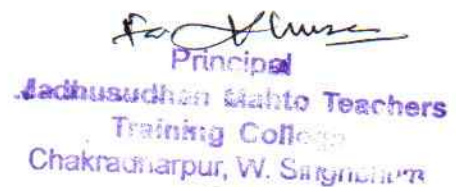 Principal
Madhusudhan Mahto Teachers
Training College
Chakradharpur, W. Singhbhum